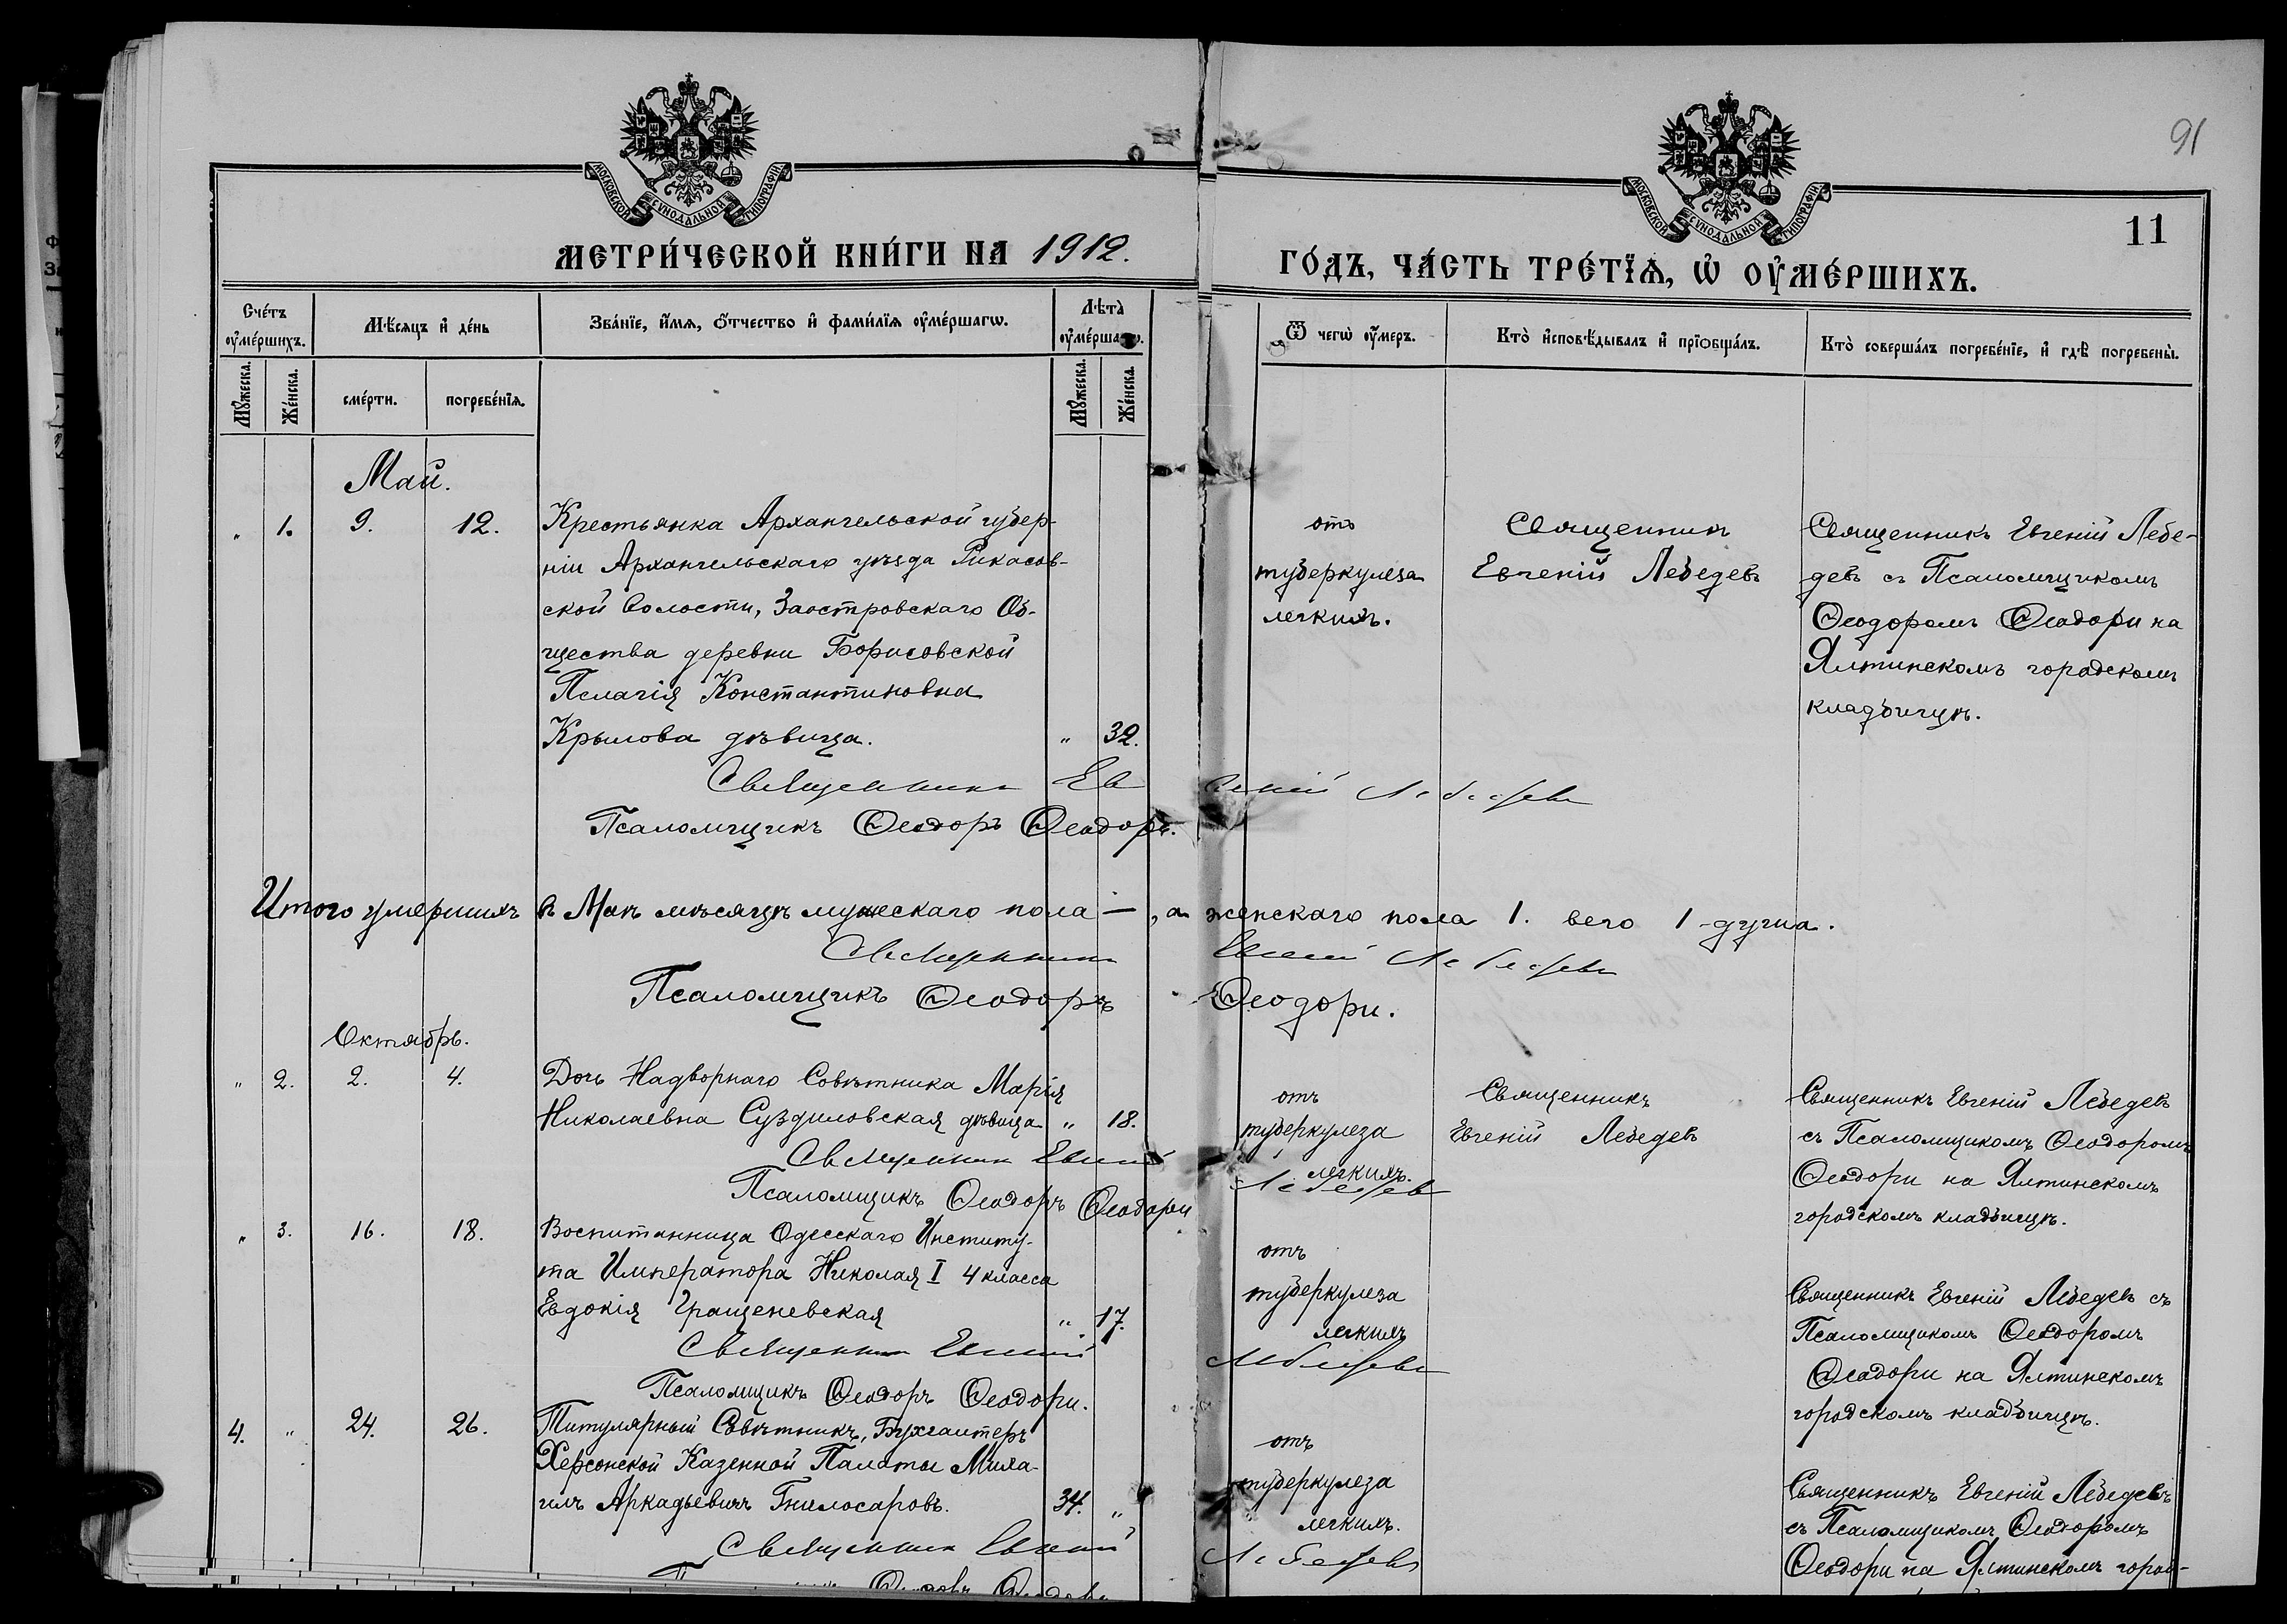 91
11
МОСКОВСКОЙ СѴНОДАЛЬНОЙ ТИПОГРАФІИ
МОСКОВСКОЙ СѴНОДАЛЬНОЙ ТИПОГРАФІИ
МЕТРИ́ЧЕСКОЙ КНИ́ГИ НА 1912.
ГО́ДЪ, ЧА́СТЬ ТРЕ́ТЇѦ, Ѡ҆ ОУ҆МЕ́РШИХЪ.
Сче́тъ оу҆ме́ршихъ.
Мѣ́сяцъ и҆ де́нь
Зва́нїе, и҆́мя, ѻ҆́тчество и҆ фами́лїя оу҆ме́ршагѡ.
Лѣ̀та оу҆ме́ршагѡ.
Ѿ чегѡ̀ оу҆́меръ.
Кто̀ и҆сповѣ́дывалъ и҆ прїѻбща́лъ.
Кто̀ соверша́лъ погребе́нїе, и҆ гдѣ̀ погребены̀.
Мꙋ́жеска.
Же́нска.
сме́рти.
погребе́нїя.
Мꙋ́жеска.
Же́нска.
Май.
" 1. 9. 12. Крестьянка Архангельской губер-
ніи Архангельскаго уѣзда Рикасов-
ской волости, Заостровскаго Об-
щества деревни Борисовской
Пелагія Константиновна
Крылова дѣвица. " 32.
отъ
туберкулеза
легкихъ.
Священникъ
Евгеній Лебедевъ
Священникъ Евгеній Лебе-
девъ съ Псаломщикомъ
Ѳеодоромъ Ѳеодори на
Ялтинскомъ городскомъ
кладбищѣ.
Священникъ Евгеній Лебедевъ
Псаломщикъ Ѳеодоръ Ѳеодори.
Итого умершихъ въ Маѣ мѣсяцѣ мужескаго пола —, а женскаго пола 1. всего 1 душа.
Священникъ Евгеній Лебедевъ
Псаломщикъ Ѳеодоръ Ѳеодори.
Октябрь.
" 2. 2. 4. Дочь Надворнаго Совѣтника Марія
Николаевна Суздиловская дѣвица " 18.
отъ
туберкулеза
легкихъ.
Священникъ
Евгеній Лебедевъ
Священникъ Евгеній Лебедевъ
съ Псаломщикомъ Ѳеодоромъ
Ѳеодори на Ялтинскомъ
городскомъ кладбищѣ.
Священникъ Евгеній Лебедевъ
Псаломщикъ Ѳеодоръ Ѳеодори
" 3. 16. 18. Воспитанница Одесскаго Институ-
та Императора Николая I 4 класса
Евдокія Гращеневская " 17.
отъ
туберкулеза
легкихъ
Священникъ Евгеній Лебедевъ съ
Псаломщикомъ Ѳеодоромъ
Ѳеодори на Ялтинскомъ
городскомъ кладбищѣ.
Священникъ Евгеній Лебедевъ
Псаломщикъ Ѳеодоръ Ѳеодори.
4. " 24. 26. Титулярный Совѣтникъ, Бухгалтеръ
Херсонской Казенной Палаты Миха-
илъ Аркадьевичъ Гнилосаровъ. 34. "
отъ
туберкулеза
легкихъ.
Священникъ Евгеній Лебедевъ
съ Псаломщикомъ Ѳеодоромъ
Ѳеодори на Ялтинскомъ город-
Священникъ Евгеній Лебедевъ